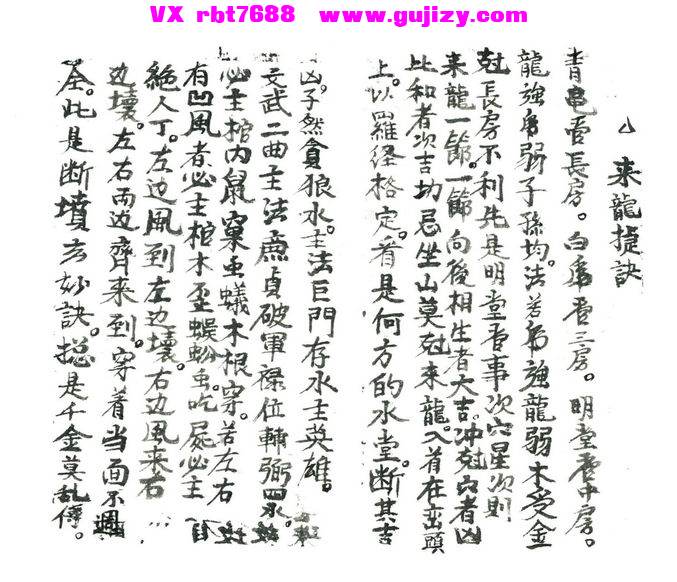 VX rbt7688 www.gujizy.com
来龍捷訣
青龍管長房。白虎管三房。明堂管中房。
龍強虎弱子孫均。法若虎強龍弱木受金
尅長房不利先是明堂看事次穴星次則
来龍一節。一節向後相生者大吉。冲尅穴者凶
比和者次吉切忌坐山莫尅来龍。入首在峦頭
上。以羅经格定。看是何方的水堂。断其吉
凶。子然貪狼水。主法巨門存水主英雄。
文武二曲主法廉貞破軍禄位輔弼四水。
必主棺内鼠窠虫蟻木根穿。若左右
有凹風者必主棺木歪蜈蚣虫吃屍必主
絶人丁。左边風到左边壞。右边風来右
边壞。左右両边齊来到。穿着当面不週
全。此是断墳玄妙訣。搃是千金莫乱傳。